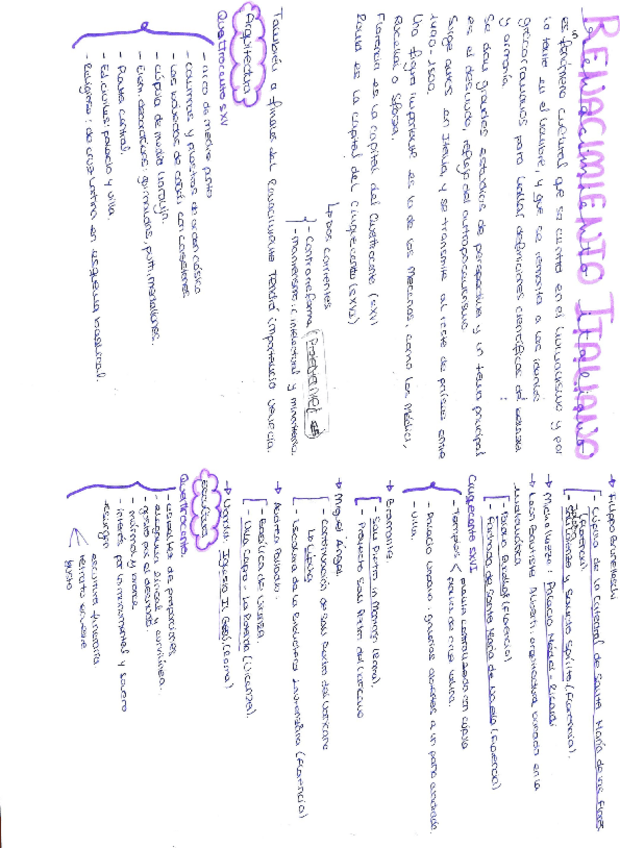 RENACIMIENTO ITALIANO
es fenómeno cultural que se centra en el humanismo y por
lo tanto en el hombre, y que se remonta a los ideales
grecorromanos para hallar definiciones científicas del belleza
y armonía.
Se dan grandes estudios de perspectiva y un tema principal
es el desnudo, reflejo del antropocentrismo
Surge antes en Italia, y se transmite al resto de países entre
Una figura importante es la de los Mecenas, como los Médici,
Rucellai o Sforza.
Florencia es la capital del Quattrocento (sXV)
Roma es la capital del Cinquecento (sXVI)
Los corrientes
- Contrarreforma (Protestantes)
- manierismo: intelectual y minoritario.
También a finales del Renacimiento tendrá importancia Venecia.
Arquitectura
Quattrocento sXV
- arco de medio punto
- columnas y pilastras de orden clásico
- con casetones
- cúpula de media naranja.
- Elem. decorativos: guirnaldas, putti, medallones.
- Planta central.
- Ed. civiles: palacio y villa.
- Religioso: de cruz latina en esquema basilical.
→ Filippo Brunelleschi
- Cúpula de la Catedral de Santa María de las Flores
(Florencia).
- San Lorenzo y Sancto Spirito (Florencia).
→ Michelozzo: Palacio Médici-Ricardi
→ Leon Battista Alberti: arquitectura basada en la
- Palacio Rucellai (Florencia)
- Fachada de Santa María de Novella (Florencia)
Cinquecento sXVI
Templos < planta centralizada con cúpula
planta de cruz latina.
- Palacio urbano: galerías abiertas a un patio cuadrado.
- Villa.
→ Bramante.
- San Pietro in Montorio (Roma).
- Proyecto San Pedro del Vaticano
→ Miguel Ángel
- Continuación de San Pedro del Vaticano
La Cúpula
- Escalera de la Biblioteca Laurenziana (Florencia)
→ Andrea Palladio.
- Basílica de Vicenza.
- Villa Capra - La Rotonda (Vicenza).
→ Vignola: Iglesia Il Gesú. (Roma)
Escultura
Quattrocento.
- estudios de proporciones
- composición y curvilínea.
- gusto por el desnudo.
- mármol y bronce
- interés por lo monumental y severo
resurgen < escultura funeraria
retrato ecuestre
busto